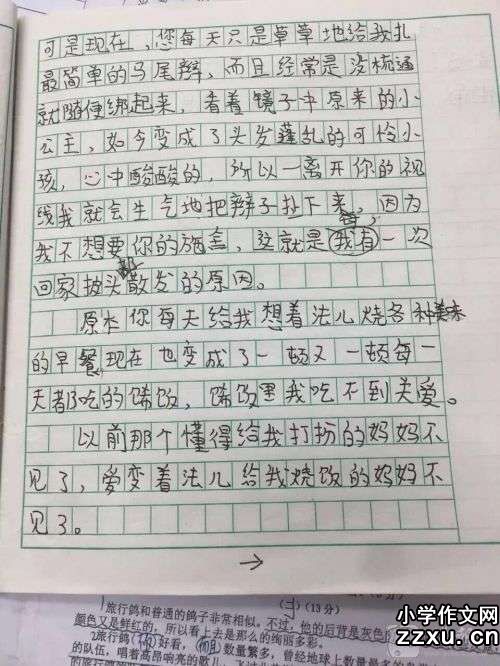 可是现在，您每天只是草草地给我扎
最简单的马尾辫，而且经常是没梳通
就随便绑起来，看着镜子中原来的小
公主，如今变成了头发蓬乱的可怜小
孩，心中酸酸的，所以一离开你的视
线我就会生气地把辫子拉下来，因为
我不想要你的施舍，这就是我有一次
回家披头散发的原因。
原本你每天给我想着法儿烧各种美味
的早餐现在也变成了一顿又一顿每一
天都吃的馊饭，馊饭里我吃不到关爱。
以前那个懂得给我打扮的妈妈不
见了，爱变着法儿给我烧饭的妈妈不
见了。
→
(二)(13分)
旅行鸽和普通的鸽子非常相似。不过，他的后背是灰色
颜色又是鲜红的，所以看上去是那么的绚丽多彩。
2旅行鸽（不仅）好看，（而且）数量繁多，曾经是地球上数量最多
的队伍，唱着高昂响亮的歌儿，
小学作文网
zzxu.cn